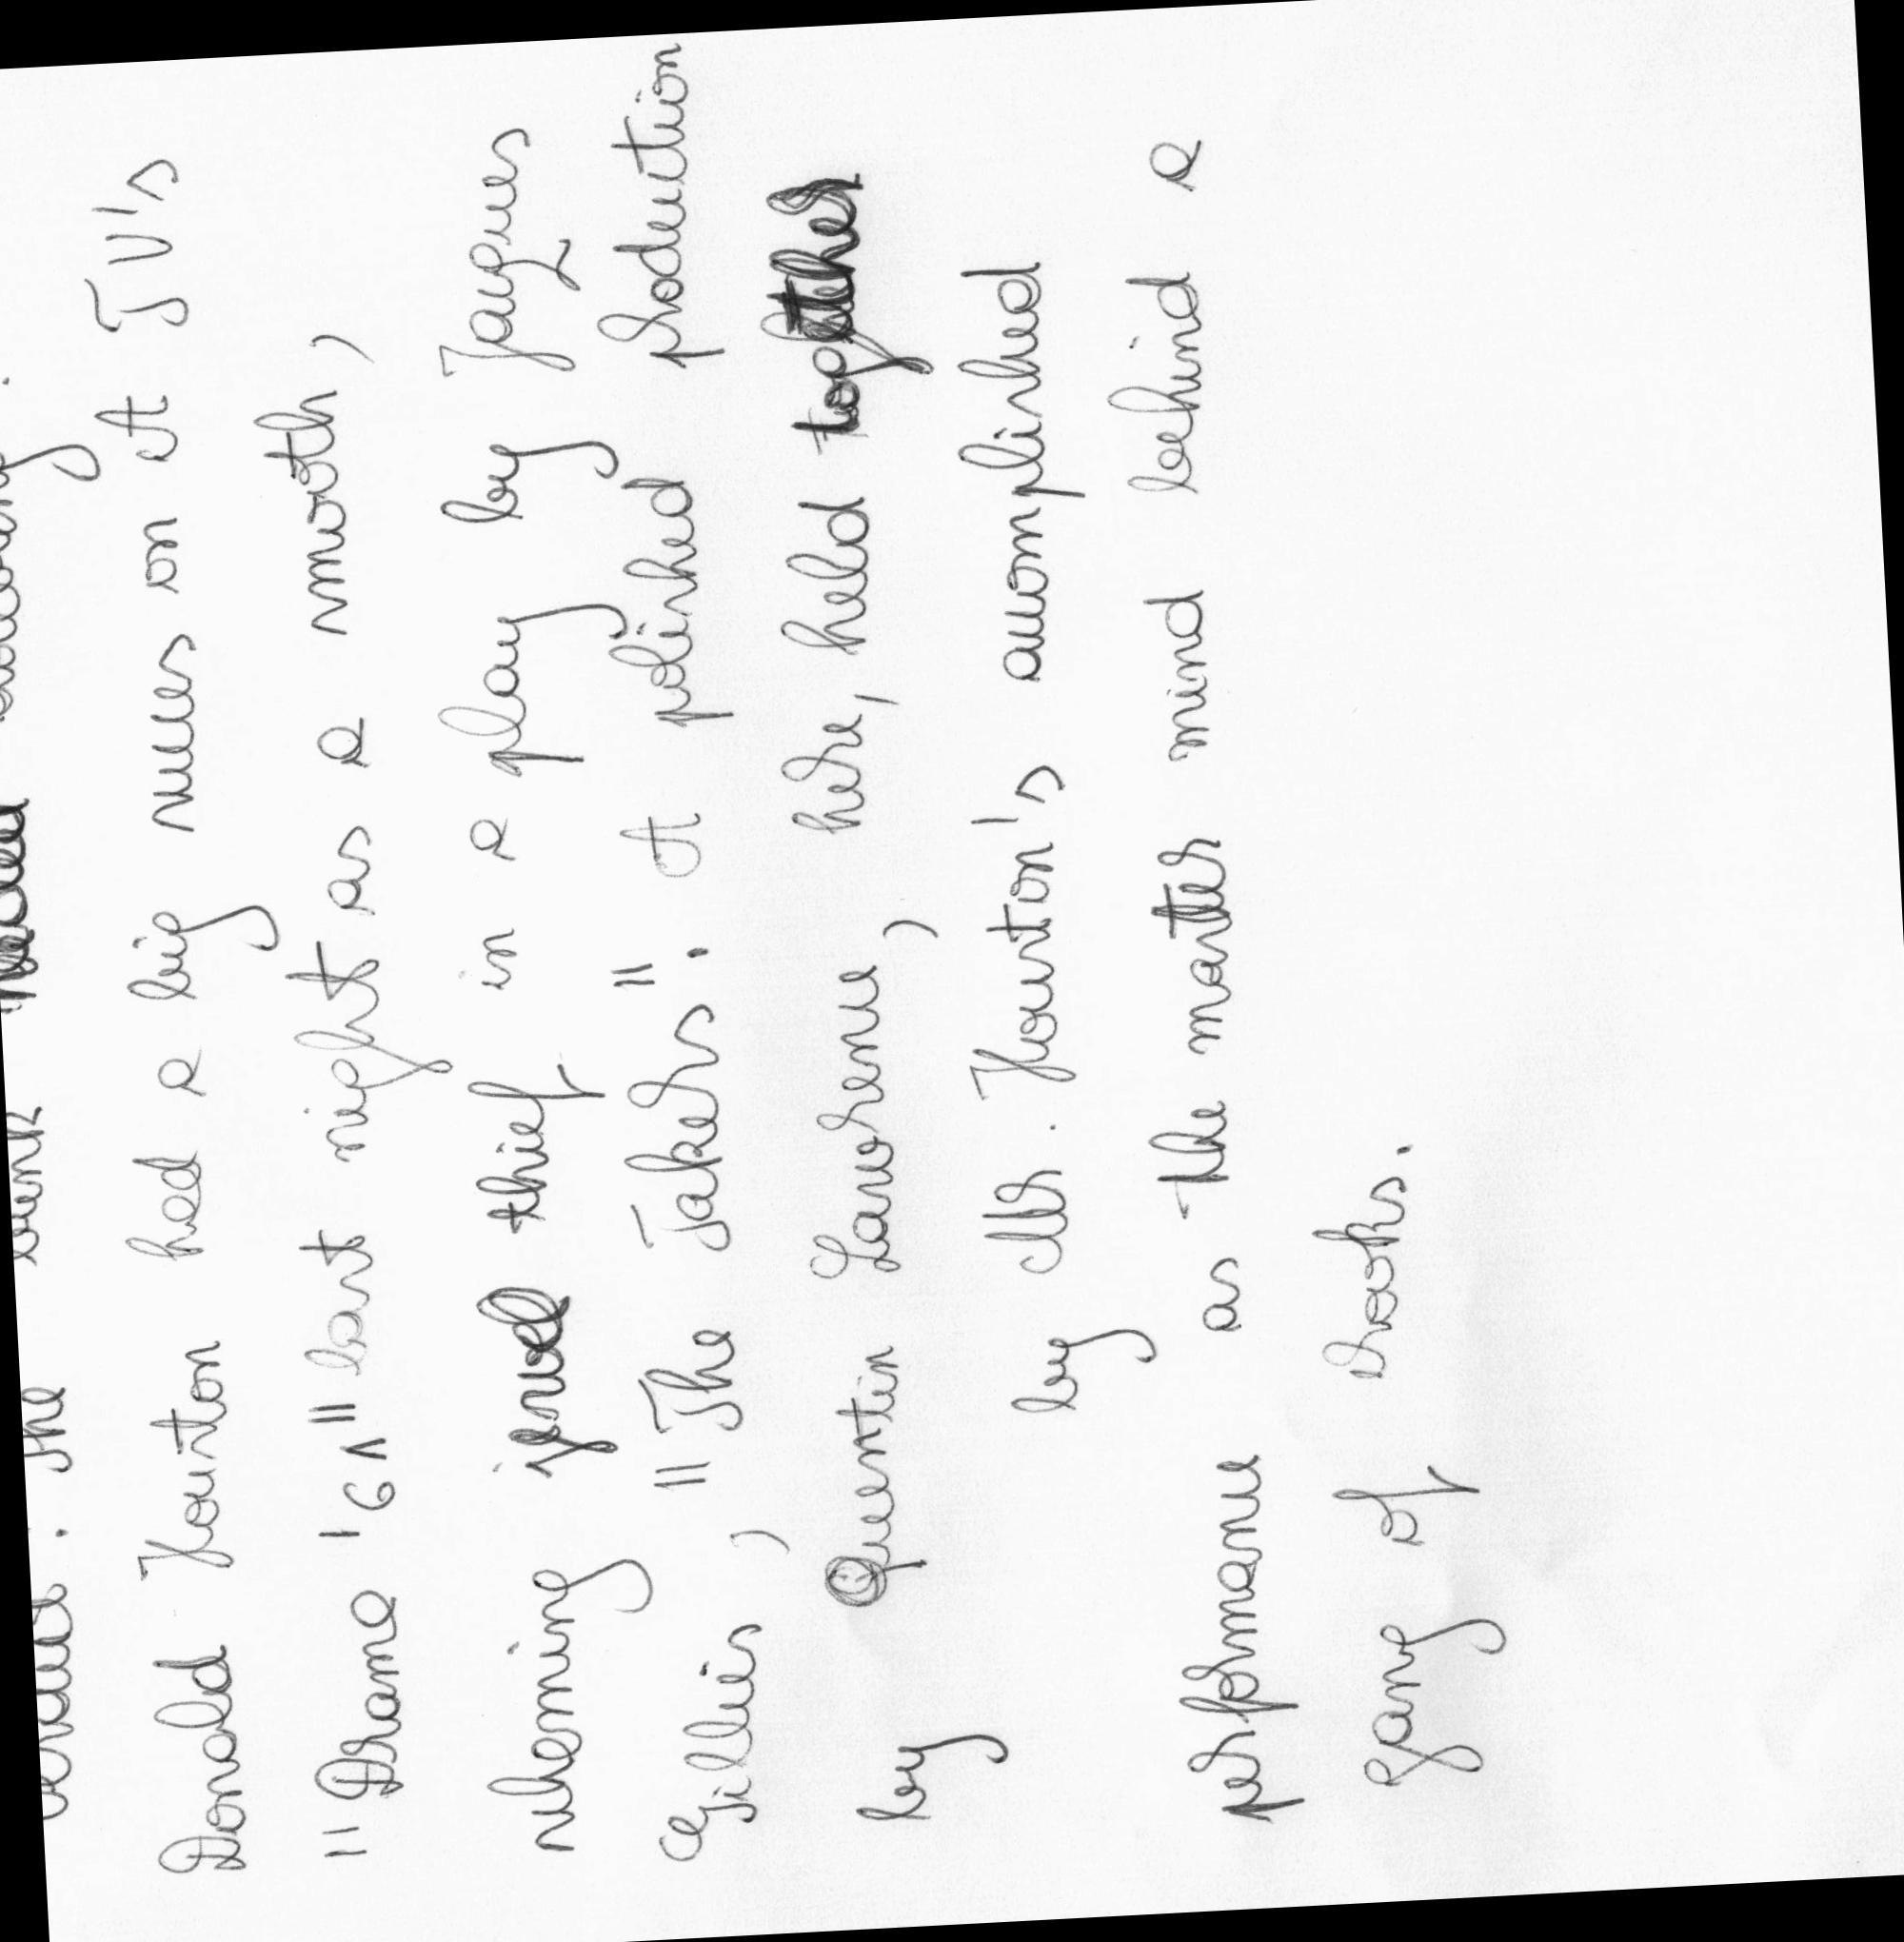 . The
Donald Houston had a big success on A TV's
"Drama '61" last night as a smooth,
scheming jewel thief in a play by Jacques
Gillies, "The Takers". A polished production
by Quentin Lawrence, here, held together
by Mr. Houston's accomplished
performance as the master mind behind a
gang of crooks.